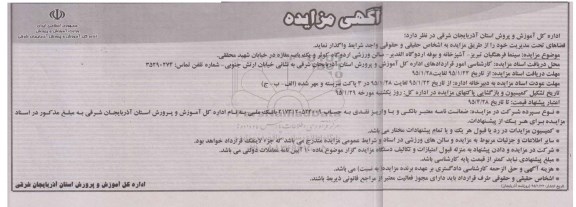 آگهی مزایده
اداره کل آموزش و پرورش استان آذربایجان شرقی در نظر دارد:
فضاهای تحت مدیریت خود را از طریق مزایده به اشخاص حقیقی و حقوقی واجد شرایط واگذار نماید.
موضوع مزایده: سینما فرهنگیان تبریز - آشپزخانه و بوفه اردوگاه الغدیر - سالن ورزشی اردوگاه کوثر و یک باب مغازه در خیابان شهید محققی.
محل دریافت اسناد مزایده: کارشناسی امور قراردادهای اداره کل آموزش و پرورش استان آذربایجان شرقی به نشانی خیابان ارتش جنوبی - شماره تلفن تماس: ۳۵۲۹۰۲۷۳
مهلت دریافت اسناد مزایده: از تاریخ ۹۵/۱/۲۲ لغایت ۹۵/۱/۲۸
مهلت عودت اسناد مزایده به دبیرخانه اداره: از تاریخ ۹۵/۱/۲۲ لغایت ۹۵/۱/۲۸ در ۳ پاکت سربسته و مهر شده (الف - ب - ج)
تاریخ تشکیل کمیسیون و بازگشایی پاکتهای مزایده در اداره کل: روز یکشنبه مورخه ۹۵/۱/۲۹
اعتبار پیشنهاد قیمت: تا تاریخ ۹۵/۲/۲۸
نوع سپرده شرکت در مزایده: ضمانت نامه معتبر بانکی و یا واریز نقدی به حساب بانک ملی به نام اداره کل آموزش و پرورش استان آذربایجان شرقی به مبلغ مذکور در اسناد
مزایده برای هر یک از پیشنهادات.
کمیسیون مزایدات در رد یا قبول هر یک و یا تمام پیشنهادات مختار می باشد.
سایر اطلاعات و جزئیات مربوط به مزایده و سالن های ورزشی در اسناد و شرایط عمومی مزایده مندرج می باشد که جزء لاینفک قرارداد خواهد بود.
شرکت در مزایده و دادن پیشنهاد به منزله قبول امتیازات و تکالیف دستگاه مزایده گزار موضوع ماده ۱۰ آیین نامه معاملات دولتی می باشد.
مبلغ پیشنهادی نباید کمتر از قیمت پایه کارشناسی باشد.
هزینه آگهی و حق الزحمه کارشناسی دادگستری بر عهده برنده مزایده (به نسبت) می باشد.
اشخاص حقیقی و حقوقی طرف قرارداد باید دارای مجوز فعالیت معتبر از مراجع قانونی ذیربط باشند.
اداره کل آموزش و پرورش استان آذربایجان شرقی